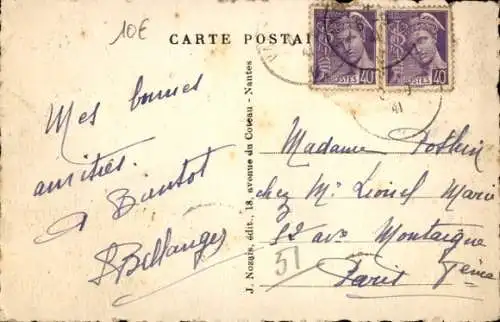 10€
CARTE POSTALE
POSTES 40
POSTES 40
41
Mes bonnes
amitiés.
A Bientot
Bellanger
J. Nozais, édit., 18, avenue du Coteau - Nantes
Madame
chez Mr Lionel Marie
52 ave Montaigne
51
Paris 8ème